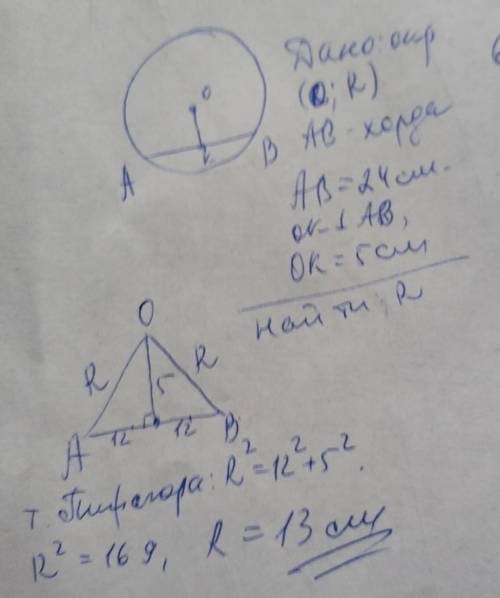 Дано: окр
(O; R)
AB - хорда
AB = 24 см.
OK ⊥ AB,
OK = 5 см
Найти: R
O
A
B
O
R
R
5
A
12
12
B
т. Пифагора: R² = 12² + 5².
R² = 169, R = 13 см